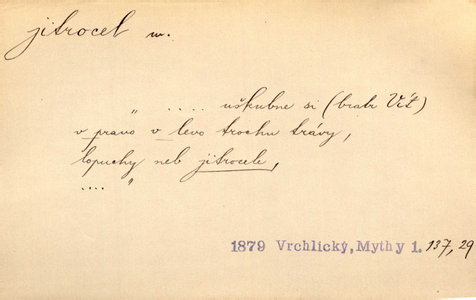 jitrocel m.
„ .... uškubne si (bratr Vít)
v pravo v levo trochu trávy,
lopuchy neb jitrocele,
.... "
1879 Vrchlický, Mythy 1. 137, 29